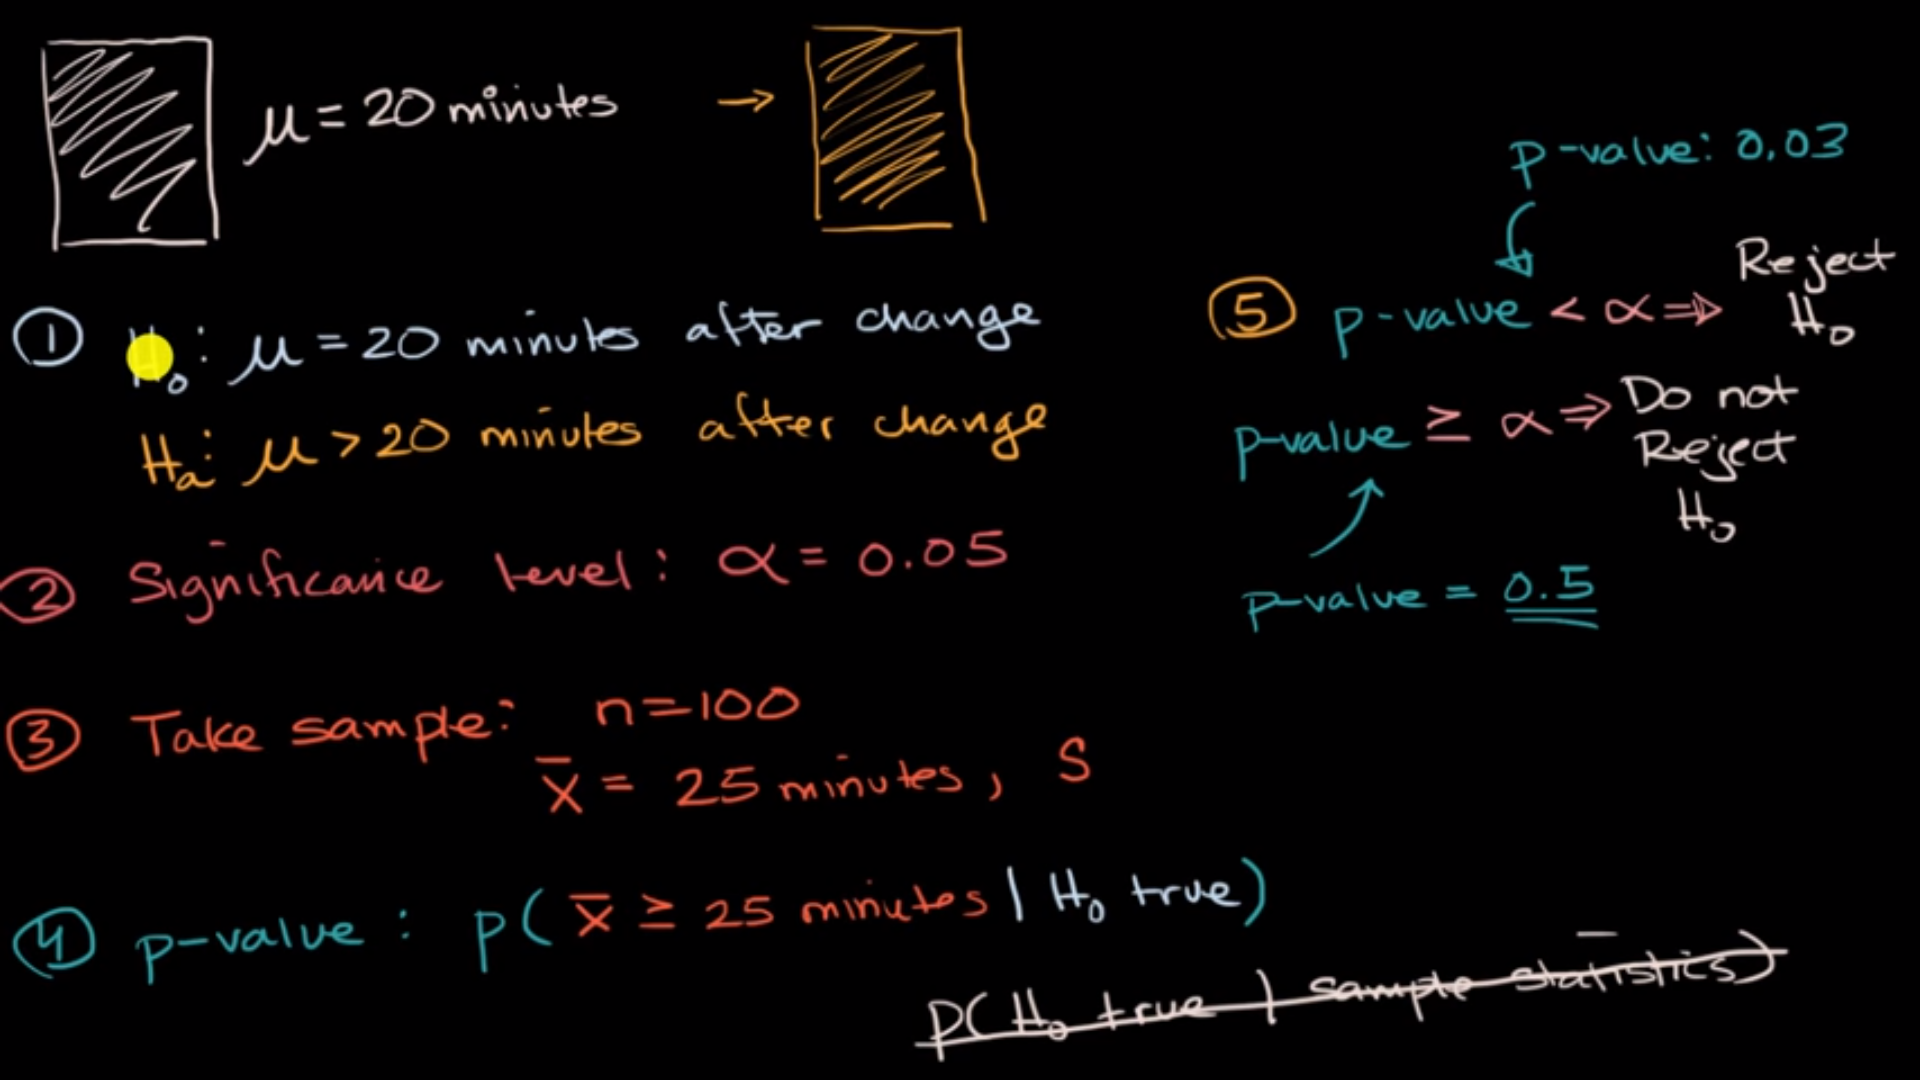 μ = 20 minutes →
① H₀: μ = 20 minutes after change
Hₐ: μ > 20 minutes after change
② Significance level: α = 0.05
③ Take sample: n=100
x̄ = 25 minutes, S
④ p-value: p( x̄ ≥ 25 minutes | H₀ true)
P(H₀ true | sample statistics)
p-value: 0.03
⑤ p-value < α ⇒ Reject
H₀
p-value ≥ α ⇒ Do not
Reject
H₀
p-value = 0.5